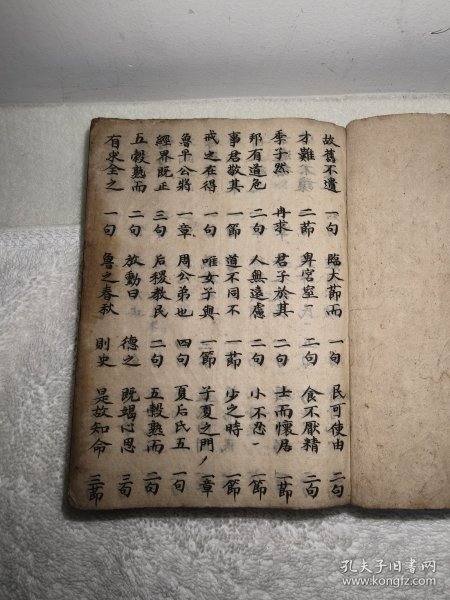 故舊不遺 一句 臨大節而 一句 民可使由 二句
才難 二節 卑宮室 二句 食不厭精 二句
季子然 冉求 君子於其 二句 士而懷居 一節
邦有道危 二句 人無遠慮 二句 小不忍 一節
事君敬其 一節 道不同不 一節 少之時 一節
戒之在得 一句 唯女子與 一節 子夏之門 一章
魯平公將 一章 周公弟也 四句 夏后氏五 一句
經界既正 三句 后稷教民 二句 五穀熟而 二句
五穀熟而 二句 放勳曰 德之 既竭心思 三句
有求全之 一句 魯之春秋 則史 是故知命 三節
孔夫子旧书网
www.kongfz.com